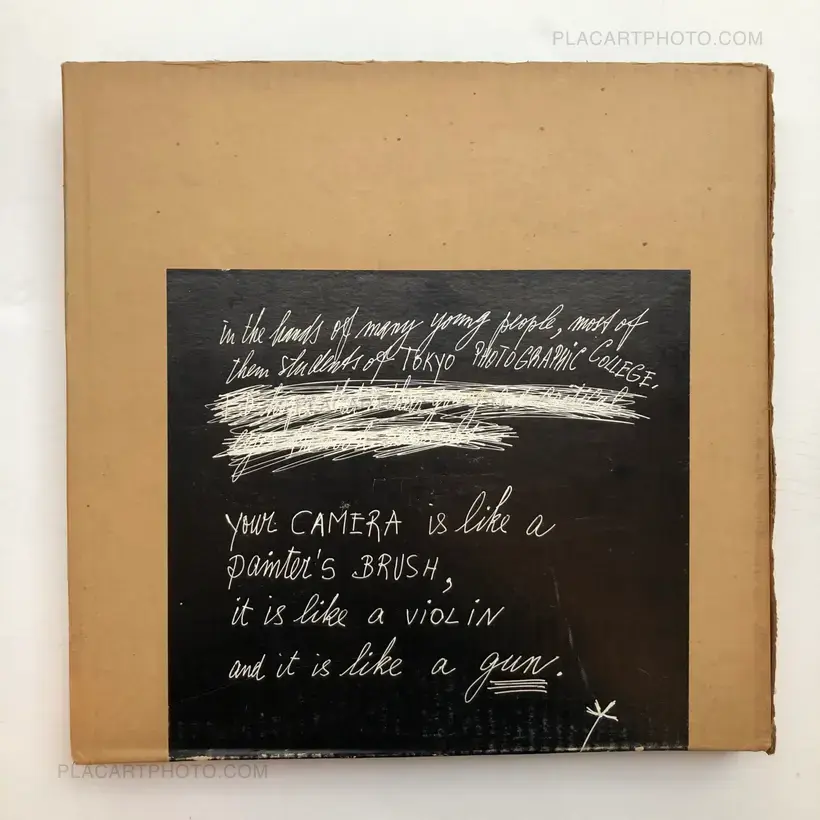 PLACARTPHOTO.COM
in the hands of many young people, most of
them students of TOKYO PHOTOGRAPHIC COLLEGE.
your CAMERA is like a
painter's BRUSH,
it is like a VIOLIN
and it is like a gun.
PLACARTPHOTO.COM